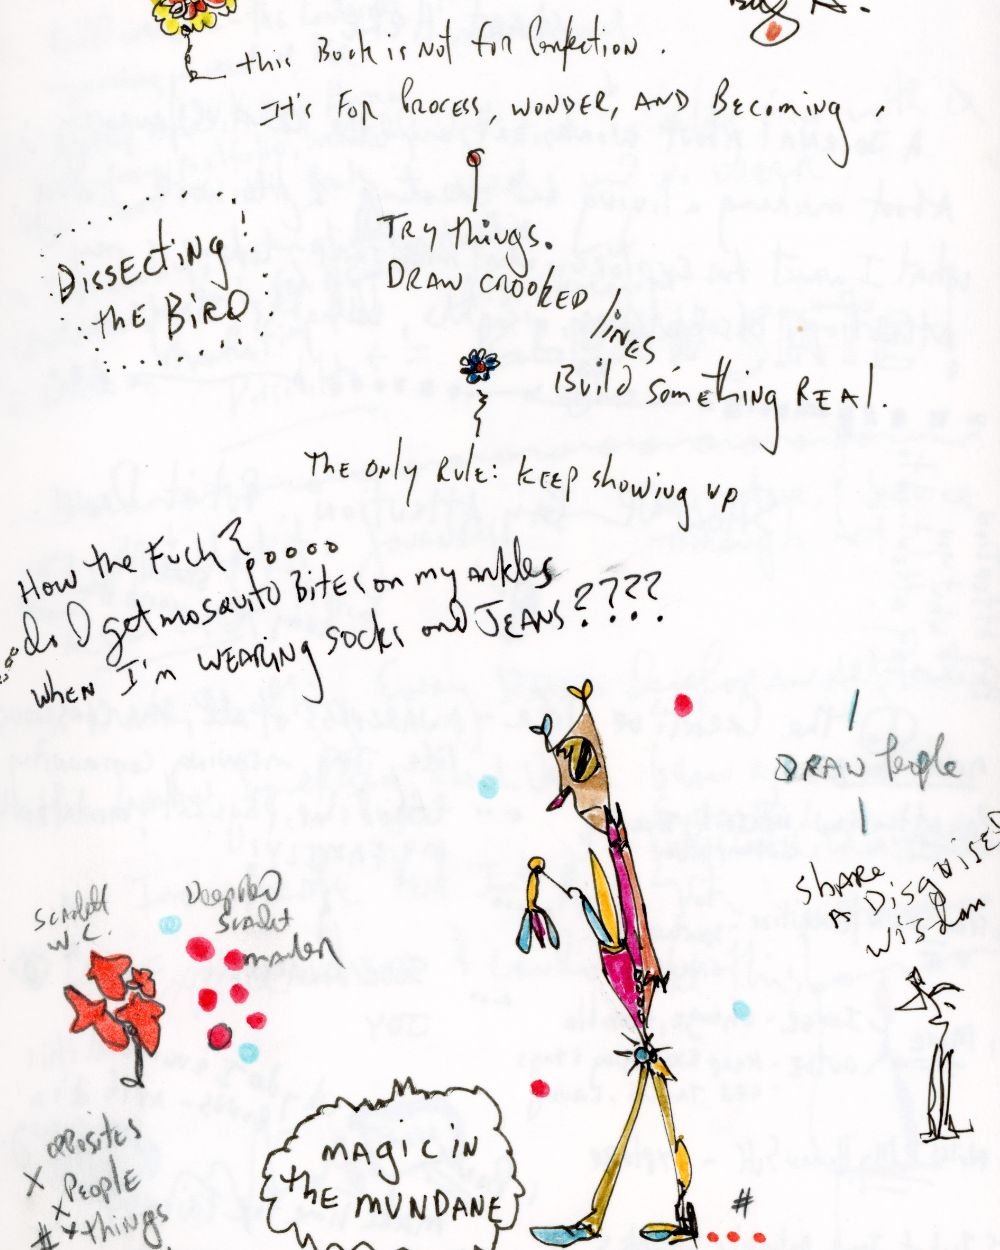 this Book is Not for Perfection.
It's FOR Process, WONDER, AND Becoming.
TRY things.
DRAW CROOKED
lines
Build something REAL.
DISSECTING!
the BIRD.
The only RULE: KEEP showing up
How the Fuck?....
do I get mosquito Bites on my ankles
when I'm WEARING socks and JEANS????
DRAW people
SHARE
A DISGUISED
WISDOM
Scarlett
W.C.
Deep Red
Scarlet
marker
MAGIC IN
the MUNDANE
opposites
x People
x things
#
#